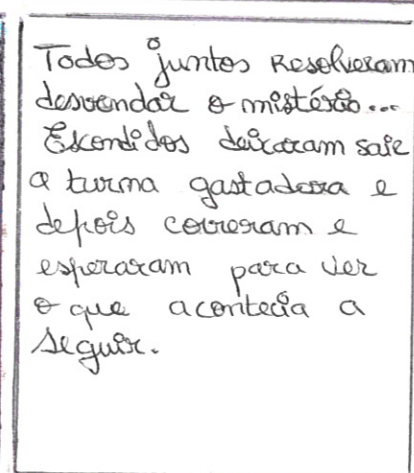 Todos juntos Resolveram
desvendar o mistério...
Escondidos deixaram sair
a turma gastadora e
depois correram e
esperaram para ver
o que acontecia a
seguir.